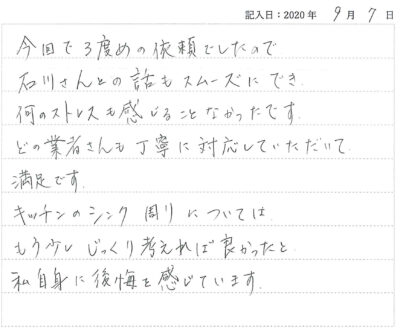 記入日：2020年 9月 7日
今回で3度めの依頼でしたので
石川さんとの話もスムーズにでき
何のストレスも感じることなかったです.
どの業者さんも丁寧に対応していただいて
満足です.
キッチンのシンク周りについては
もう少しじっくり考えれば良かったと
私自身に後悔を感じています.